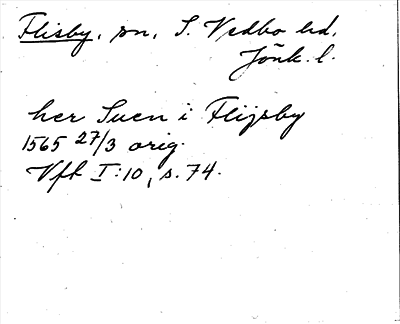 Flisby, sn, S. Vedbo hd,
Jönk. l.
her Suen i Flijsby
1565 27/3 orig.
Vfb I:10, s. 74.